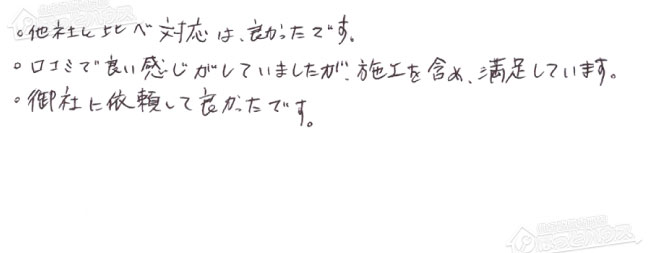 。他社と比べ対応は、良かったです。
。口コミで良い感じがしていましたが、施工を含め、満足しています。
。御社に依頼して良かったです。